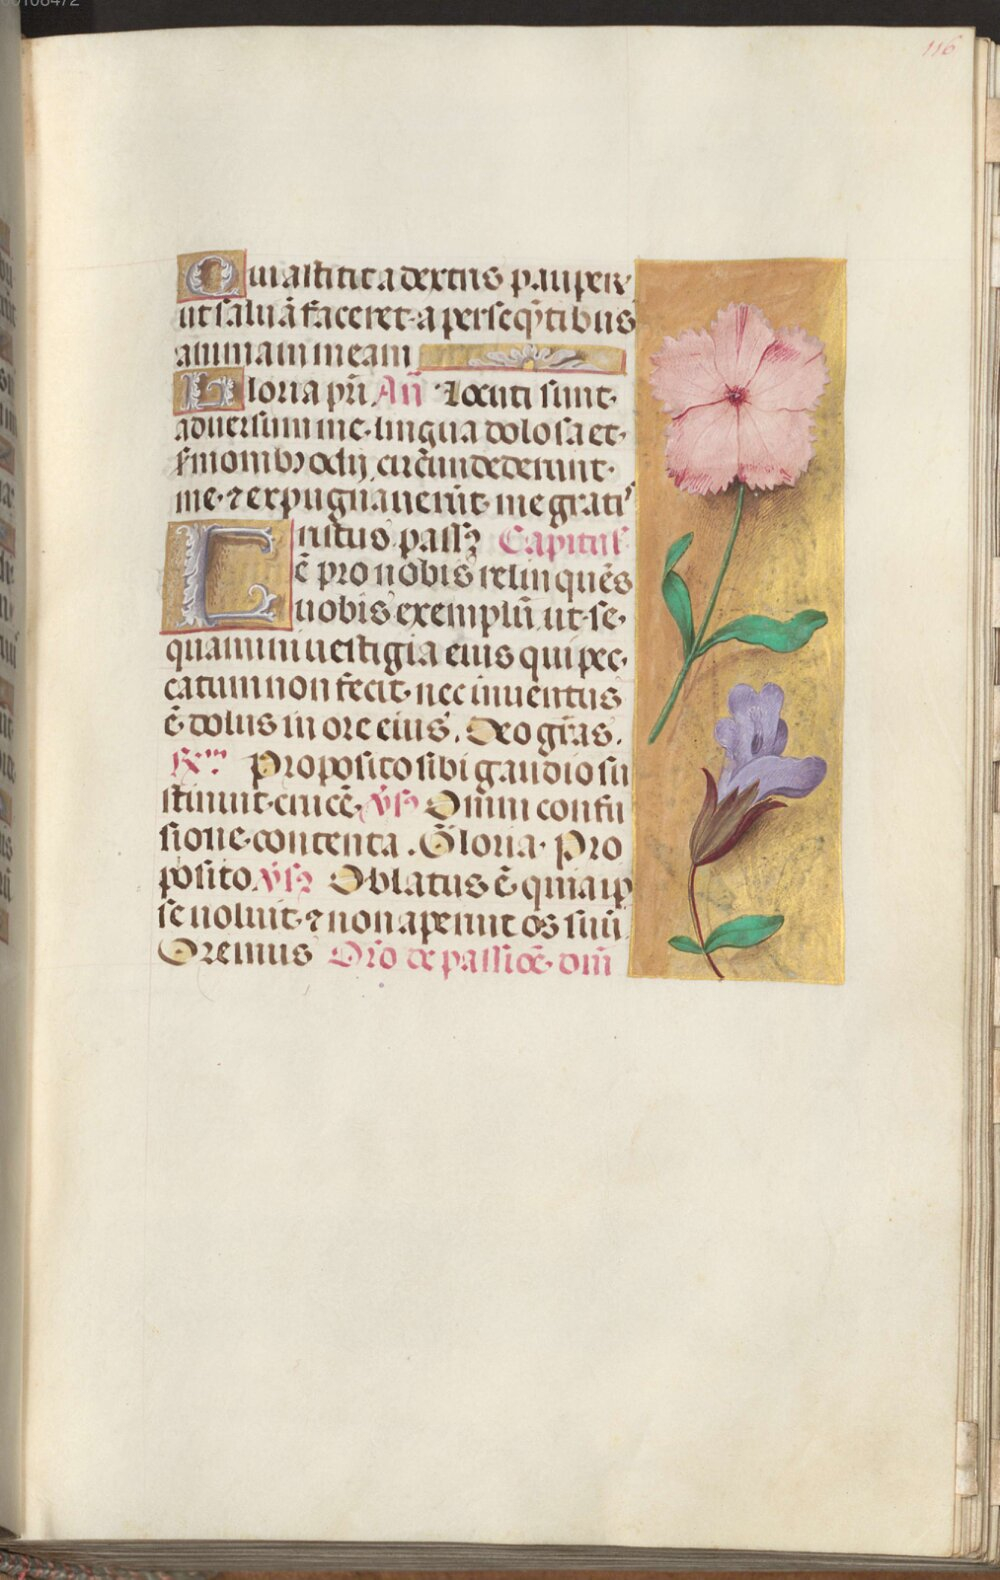 116
Qui astitit a dextris pauperis
ut salvā faceret a perseq̄tibus
animam meam
Gloria pr̄i Añ Locuti sunt
adversum me lingua dolosa et
s̄monibȝ odij circūdederunt
me ⁊ expugnaverūt me gratis
C Cristus passȝ Capitul
ē pro nobis relinquēs
vobis exemplū ut se
quamini vestigia eius qui pec
catum non fecit nec inventus
ē dolus in ore eius. Deo gr̄as.
Proposito sibi gaudio su
stinuit crucē. v̄s Omni confu
sione contenta. Gloria. Pro
posito v̄s Oblatus ē quia ip
se voluit ⁊ non aperuit os suū
Oremus Or̄o de passiōe dn̄i